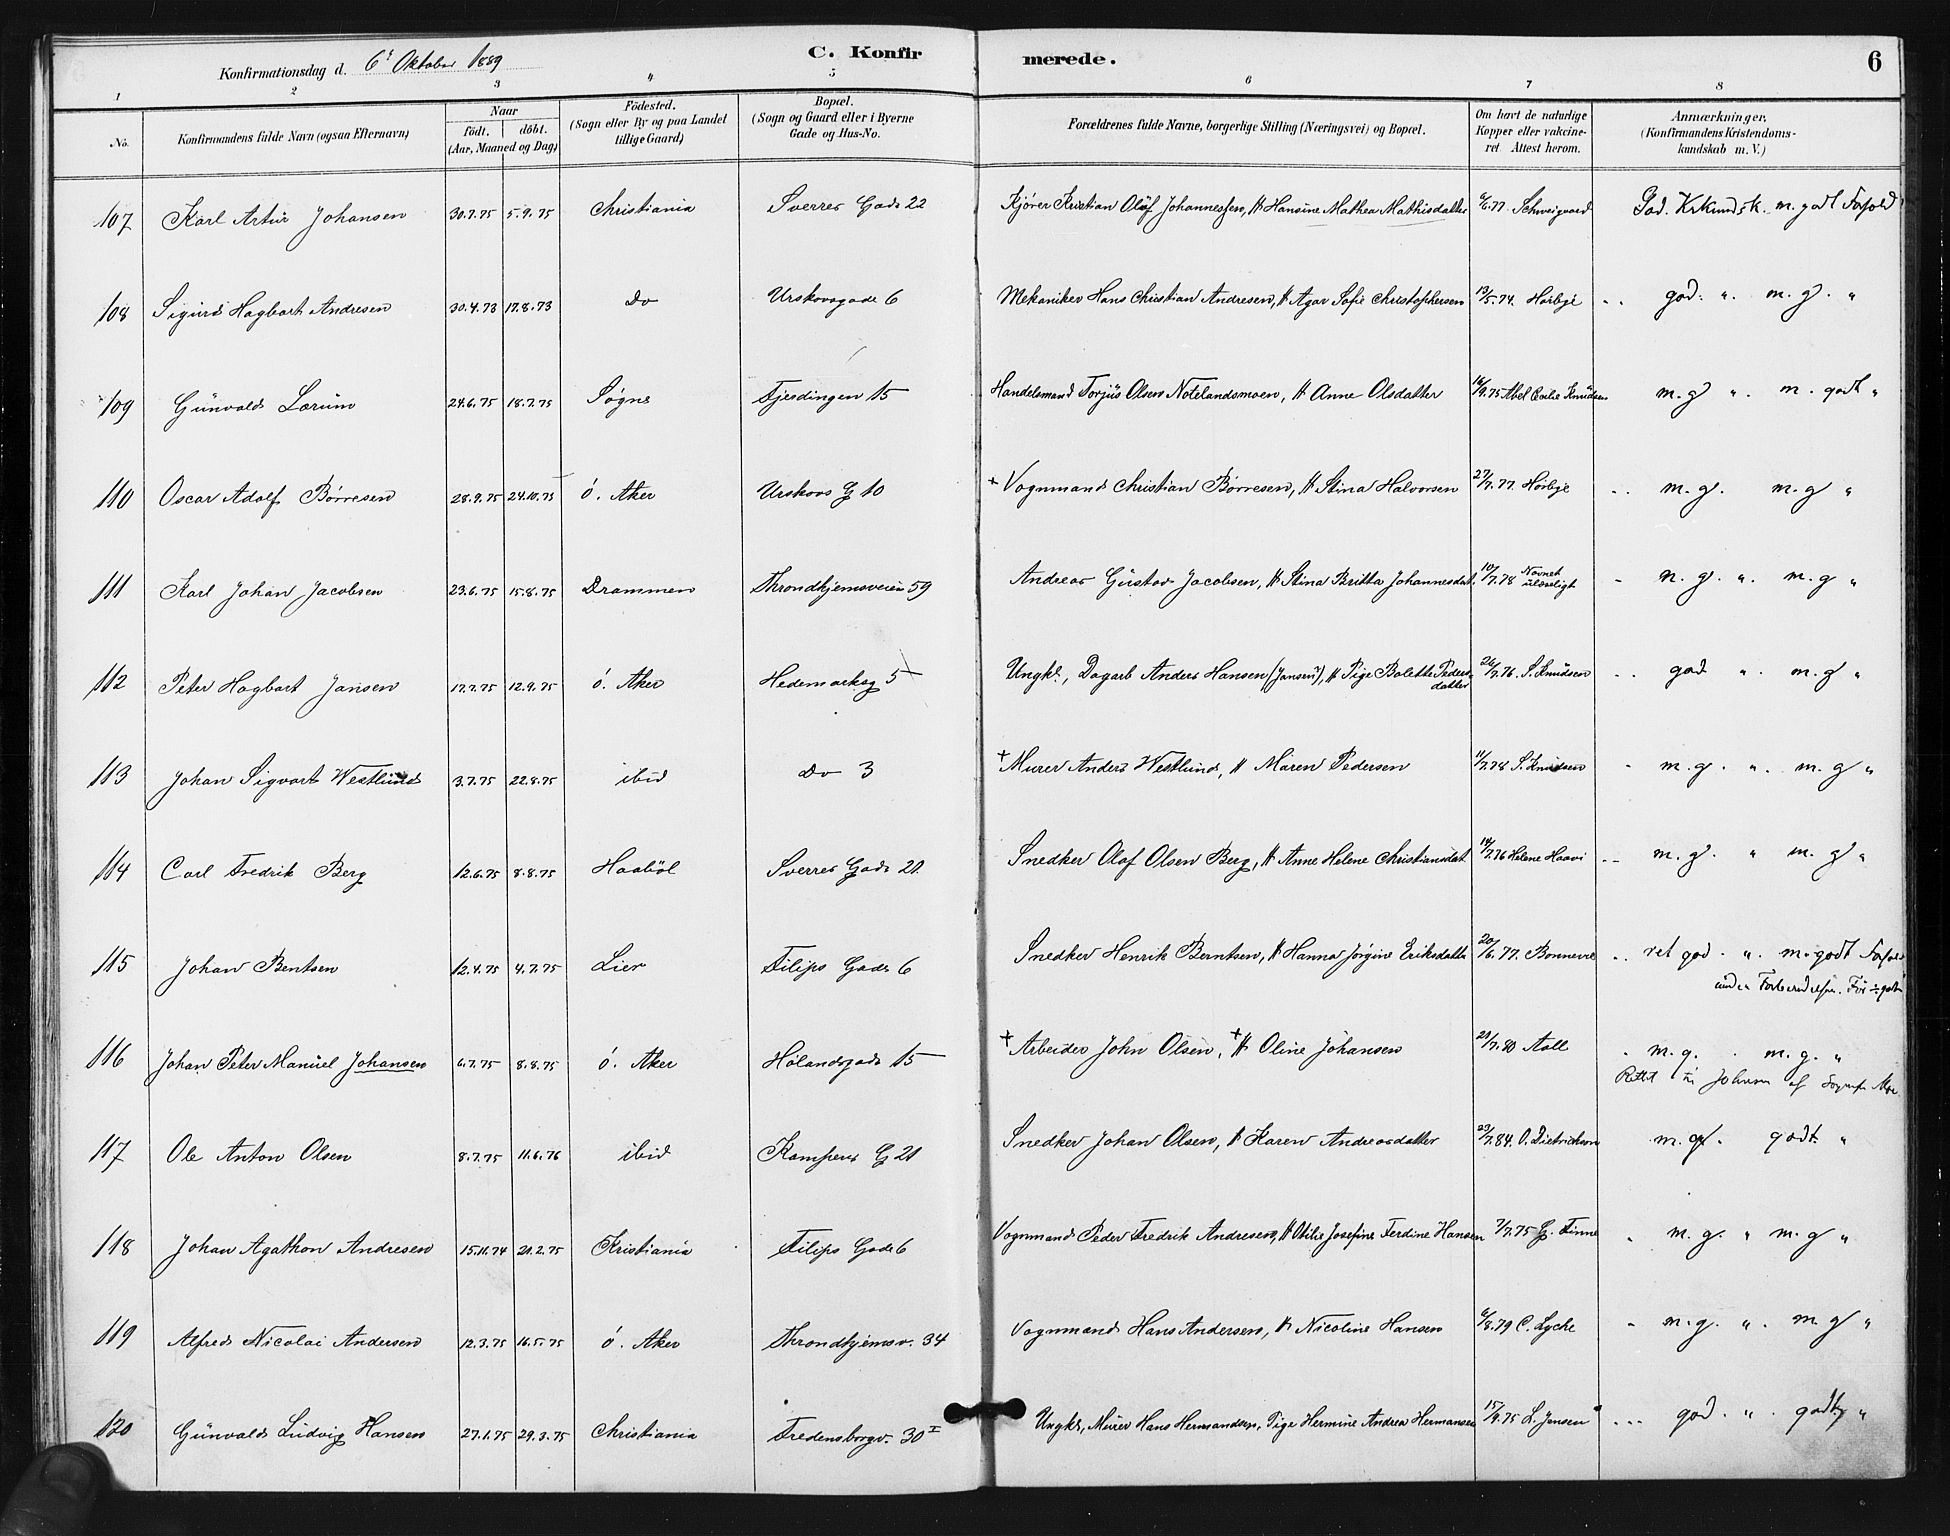 Konfirmationsdag d. 6' Oktober 1889 C. Konfirmerede. 6
1 2 3 4 5 6 7 8
No. Konfirmandens fulde Navn (ogsaa Efternavn) Naar födt. döbt. (Aar, Maaned og Dag) Födested. (Sogn eller By og paa Landet tillige Gaard) Bopæl. (Sogn og Gaard eller i Byerne Gade og Hus-No. Forældrenes fulde Navne, borgerlige Stilling (Næringsvei) og Bopæl. Om havt de naturlige Kopper eller vakcineret Attest herom. Anmærkninger. (Konfirmandens Kristendomskundskab m. V.)
107 Karl Artur Johansen 30.7.75 5.9.75 Christiania Sverres Gade 22 Kjörer Kristian Olaf Johannessen, H Hansine Mathea Mathisdatter 6/6.77 Schweigaard God. Kr.kundsk. m. godt Forhold
108 Sigurd Hagbart Andresen 30.4.73 17.8.73 Do Urskovsgade 6 Mekaniker Hans Christian Andresen, H Agar Sofie Christophersen 13/5.74. Hörbye god. " m. g. "
109 Gunvald Lorum 24.6.75 18.7.75 Søgne Fjerdingen 15 Handelsmand Torjus Olsen Notelandsmoen, H Anne Olsdatter 16/9.75 Abel Cecilie Knudsen m. g " m. godt "
110 Oscar Adolf Børresen 28.9.75 24.10.75 Ö. Aker Urskovs G 10 + Vognmand Christian Børresen, H Stina Halvorsen 27/7.77. Hörbye m. g. m. g "
111 Karl Johan Jacobsen 23.6.75 15.8.75 Drammen Throndhjemsveien 59 Andreas Gustav Jacobsen, H Stina Britta Johannesdat. 10/7.78 Navnet ulæseligt m. g. " m. g "
112 Peter Hagbart Jansen 17.7.75 12.9.75 Ö. Aker Hedemarksg 5 Ungk., Dagarb Anders Hansen (Jansen), H Pige Bolette Pedersdatter 26/7.76. S. Knudsen god " m. g "
113 Johan Sigvart Westlund 3.7.75 22.8.75 ibid Do 3 + Murer Anders Westlund, H Maren Pedersen 11/7.78 S. Knudsen m. g. " m. g "
114 Carl Fredrik Berg 12.6.75 8.8.75 Haaböl Sverres Gade 21 Snedker Olaf Olsen Berg, H Anne Helene Christiansdat 14/7.76 Helene Haavi m. g. " m. g "
115 Johan Bentsen 12.4.75 4.7.75 Lier Filips Gade 6 Snedker Henrik Berntsen, H Hanna Jørgine Eriksdatter 20/6.77. Bonnevie ret god. " m. godt Forhold
under Forberedelsen. Før ÷ godt
116 Johan Peter Manuel Johansen 6.7.75 8.8.75 Ö. Aker Hölandsgade 15 + Arbeider John Olsen, + H Oline Johansen 21/7.80 Aall m. g. m. g. "
Rettet til Johnsen af Sognepr.
117 Ole Anton Olsen 8.7.75 11.6.76 ibid Kampens G 21 Snedker Johan Olsen, H Karen Andreasdatter 23/7.84. O. Dietrichson m. g. godt "
118 Johan Agathon Andresen 15.11.74 21.2.75 Kristiania Filips Gade 6 Vognmand Peder Fredrik Andresen, H Otilie Josefine Ferdine Hansen 7/7.75 G. Finne m. g. " m. g "
119 Alfred Nicolai Andersen 12.3.75 16.5.75 Ö. Aker Throndhjemsv. 34 Vognmand Hans Andersen, H Nicoline Hansen 6/8.79 C. Lyche m. g. " m. g "
120 Gunvald Ludvig Hansen 27.1.75 29.3.75 Christiania Fredensborgv. 30 I Ungk., Murer Hans Hermandsen, Pige Hermine Andrea Hermansen 15/9.75 L. Jensen god. "